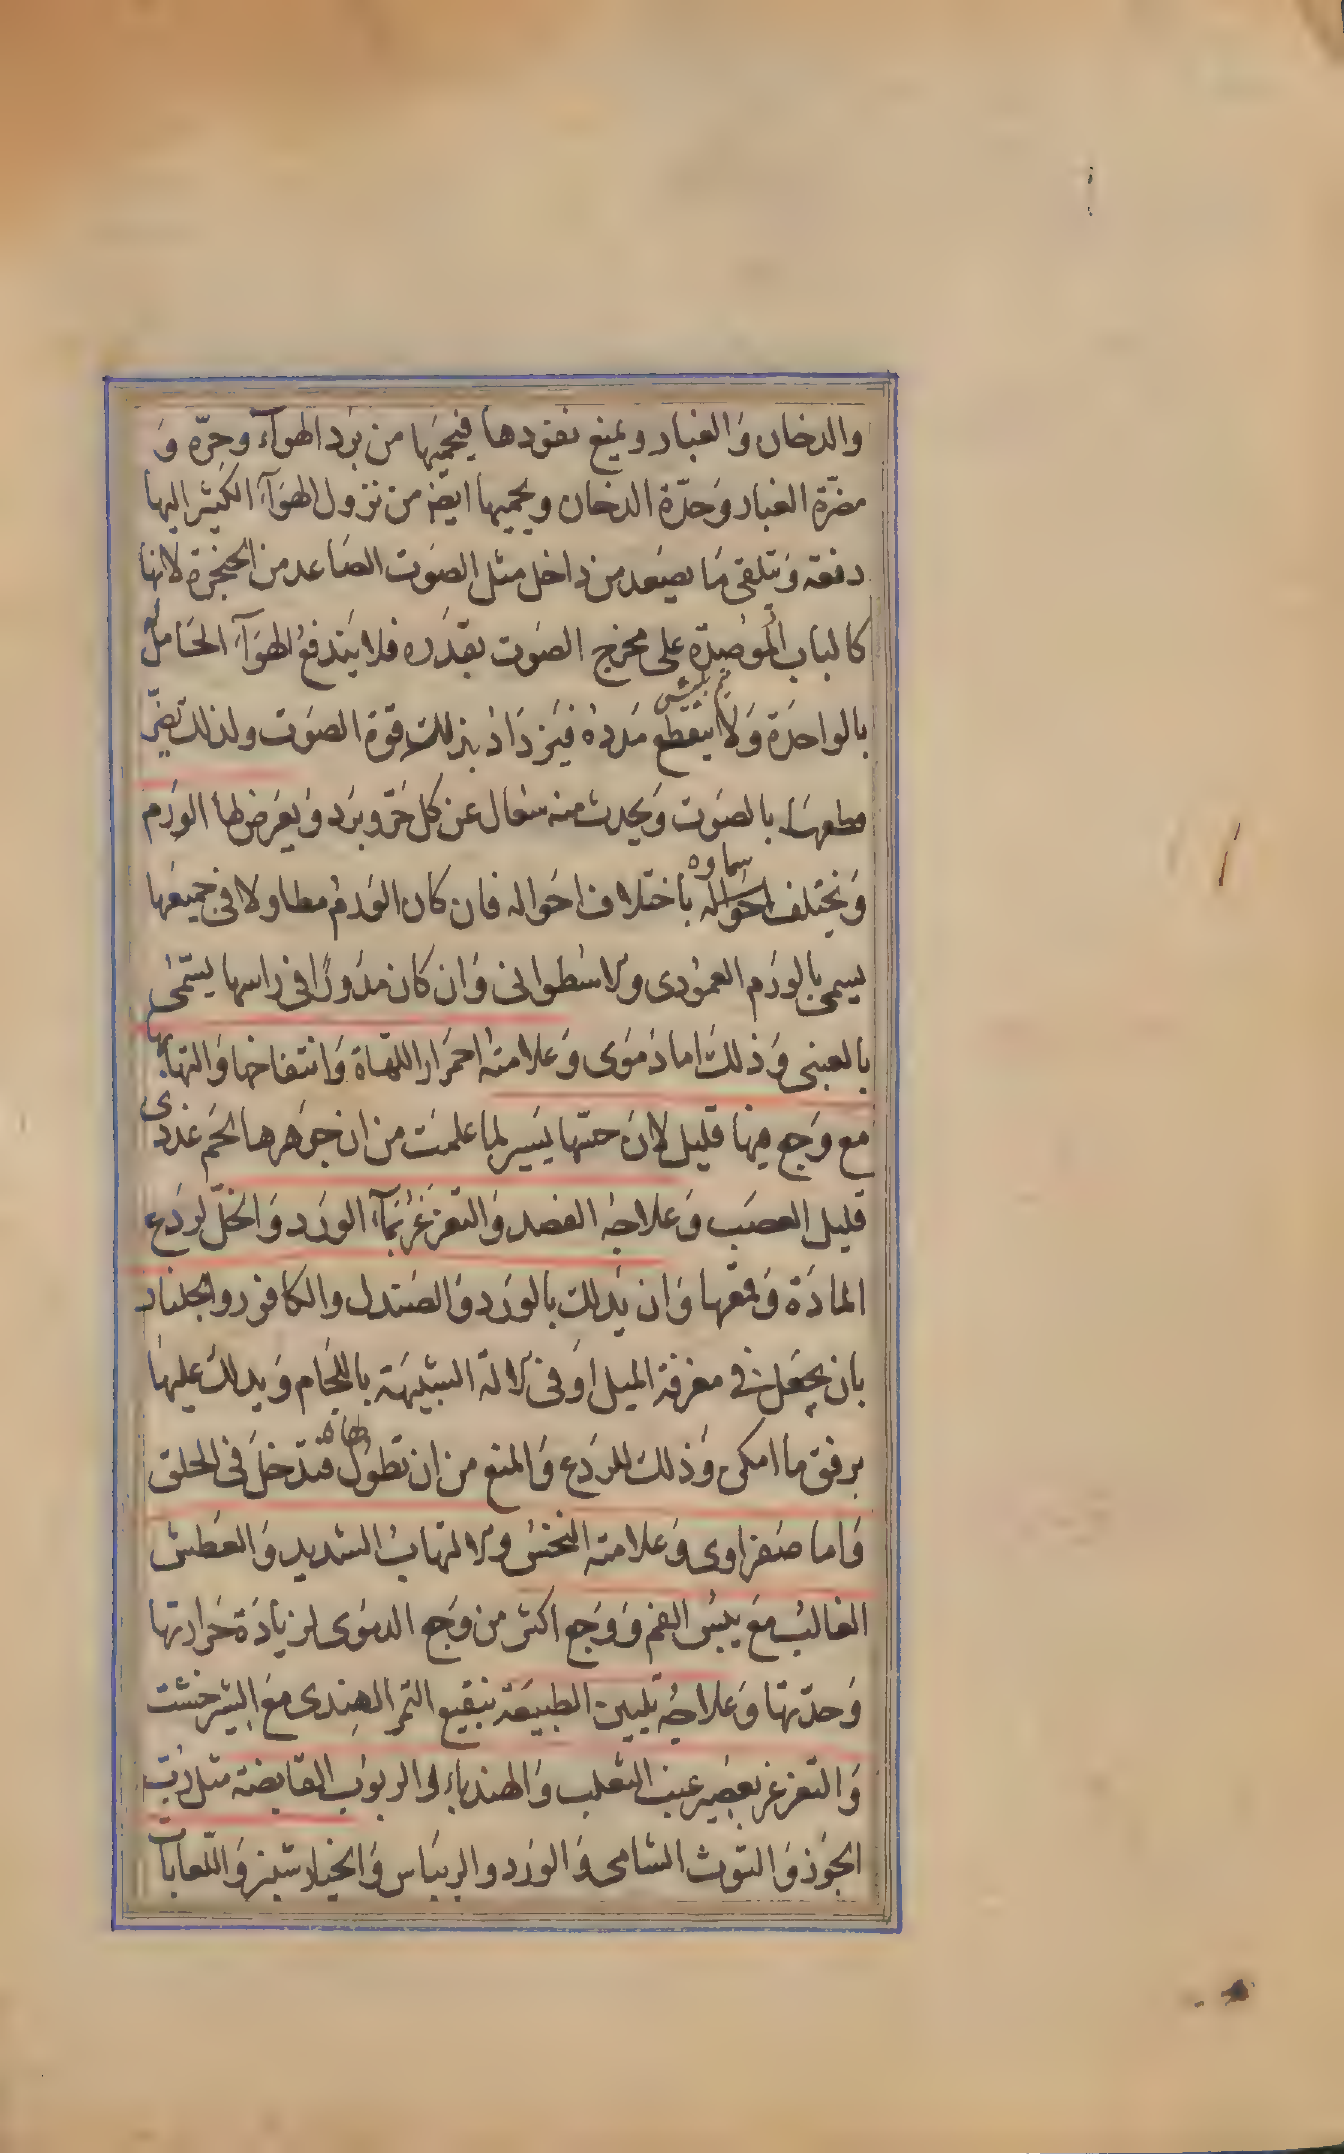 والدخان وَالغبار ويمنع نفودها فيحميَها من بَرد الهوآء وحرّه وَ
مضرّة الغبار وَحدّة الدخان ويحميها ايضہ من نزول الهوَآء الكثير اليها
دفعه وَتلقى مَا يصعَد من داخل مثل الصَوت الصَاعد من الحنجرة لانها
كالباب المُوصَدة على مخرج الصَوت بقدَره فلا يندفعُ الهوَآء الحَامل له
بالواحدَة وَلا ينقطع مَددهُ فيَزدَادُ بذلك قوة الصَوت ولذلك تضرّ
قطعهَا بالصَوت وَيحدث منه سعال عن كل حَرّ وبَرد وَيعرَض لها الورَم
وَيختلف احوَاله باختلاف احَواله فان كان الوَرم مطاولا فى جميعَها
يسمى بالورَم العموُدى والاسُطوانى وَان كان مدَورًا فى رَاسها يسَمى
بالعنبى وَذلك اما دَموَى وَعلامتهُ احمَرار اللهَاة وَانتفاخها وَالتهابها
مع وَجع فيها قليل لانَ حسّها يسَير لما علمتَ من ان جوَهرها لحَم غددى
قليل العصَب وَعلاجهُ الفصد وَالتغرَغرُ بمَآء الورَد وَالخَلّ لردَع
المادَة وَقمعَها وَان يُدلك بالورَد وَالصَندل والكافور والجلنار
بان يجعَل فى مغرفة الميل اوَ فى الالة الشبيهَة باللجَام وَيدلك عليهَا
برفق ما امكن وَذلك للردَع وَالمنع من ان تطولَ فتدخلَ فى الحلق
وَاما صَفراوى وَعلامته النخسُ والالتهابُ الشديد وَالعطَش
الغالبُ معَ يبسُ الفم وَوَجع اكثر من وَجع الدموَى لزيادَة حَرارتها
وَحدّتها وَعلاجهُ تليين الطبيعَة بنقيع التمر الهندى معَ الشيرخشت
وَالتغرغر بعصَير عنب الثعلب وَالهندباء والربوُب القابضَة مثل رُبّ
الجوَز وَالتوث الشامى وَالورَد والريبَاس وَالخيارشنبر وَاللعابات